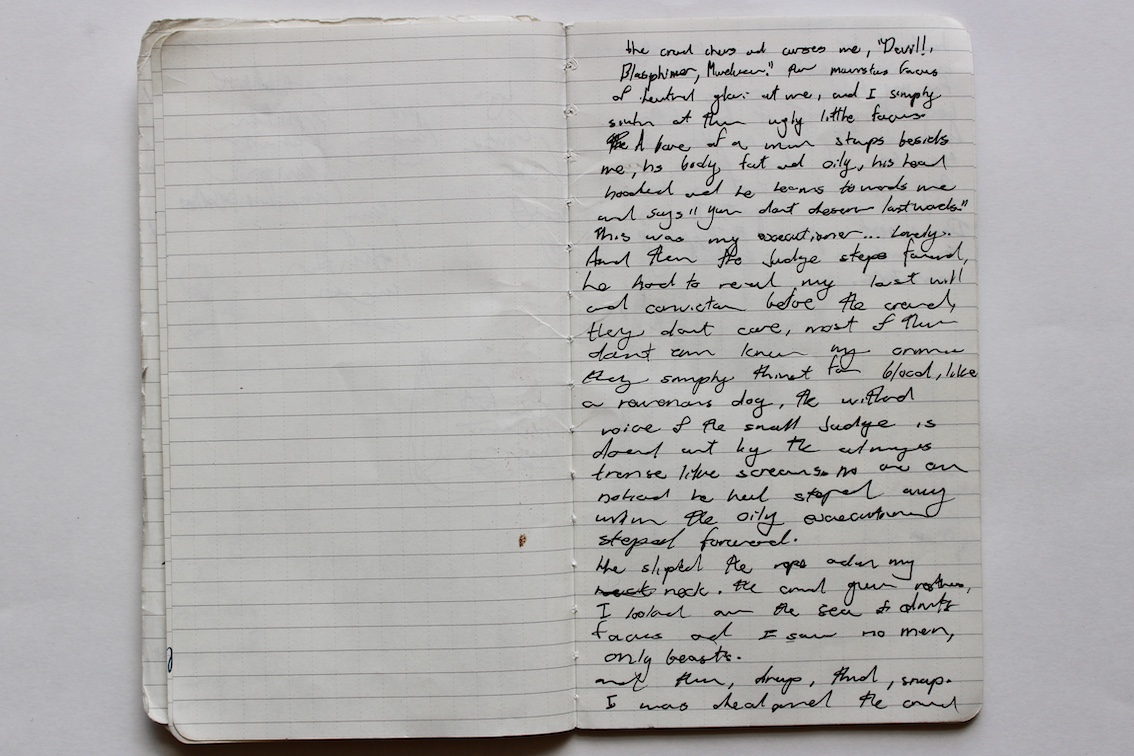 the crowd chers ad curses me, "Devil!,
Blasphimer, Murderer." their monstus faces
of hentred glare at me, and I simply
smile at their ugly little faces.
A bore of a man steps besids
me, his body fat ad oily, his head
hooded ad he leans towords me
and says "you dont deserve last words."
This was my executioner... Lovely.
And then the Judge steps forward,
he had to reveal my last will
and conviction before the crowd,
they dont care, most of them
dont even know my crime
they simply thirst for blood, like
a ravenous dog, the withered
voice of the small Judge is
drownd out by the
transe like screams no one even
noticed he had stoped away
when the oily executioner
steped forward.
He sliped the rope my
neck. the crowd grew restless,
I looked over the sea of
faces ad I saw no men,
only beasts.
and then, drop, thud, snap.
I was dead and the crowd